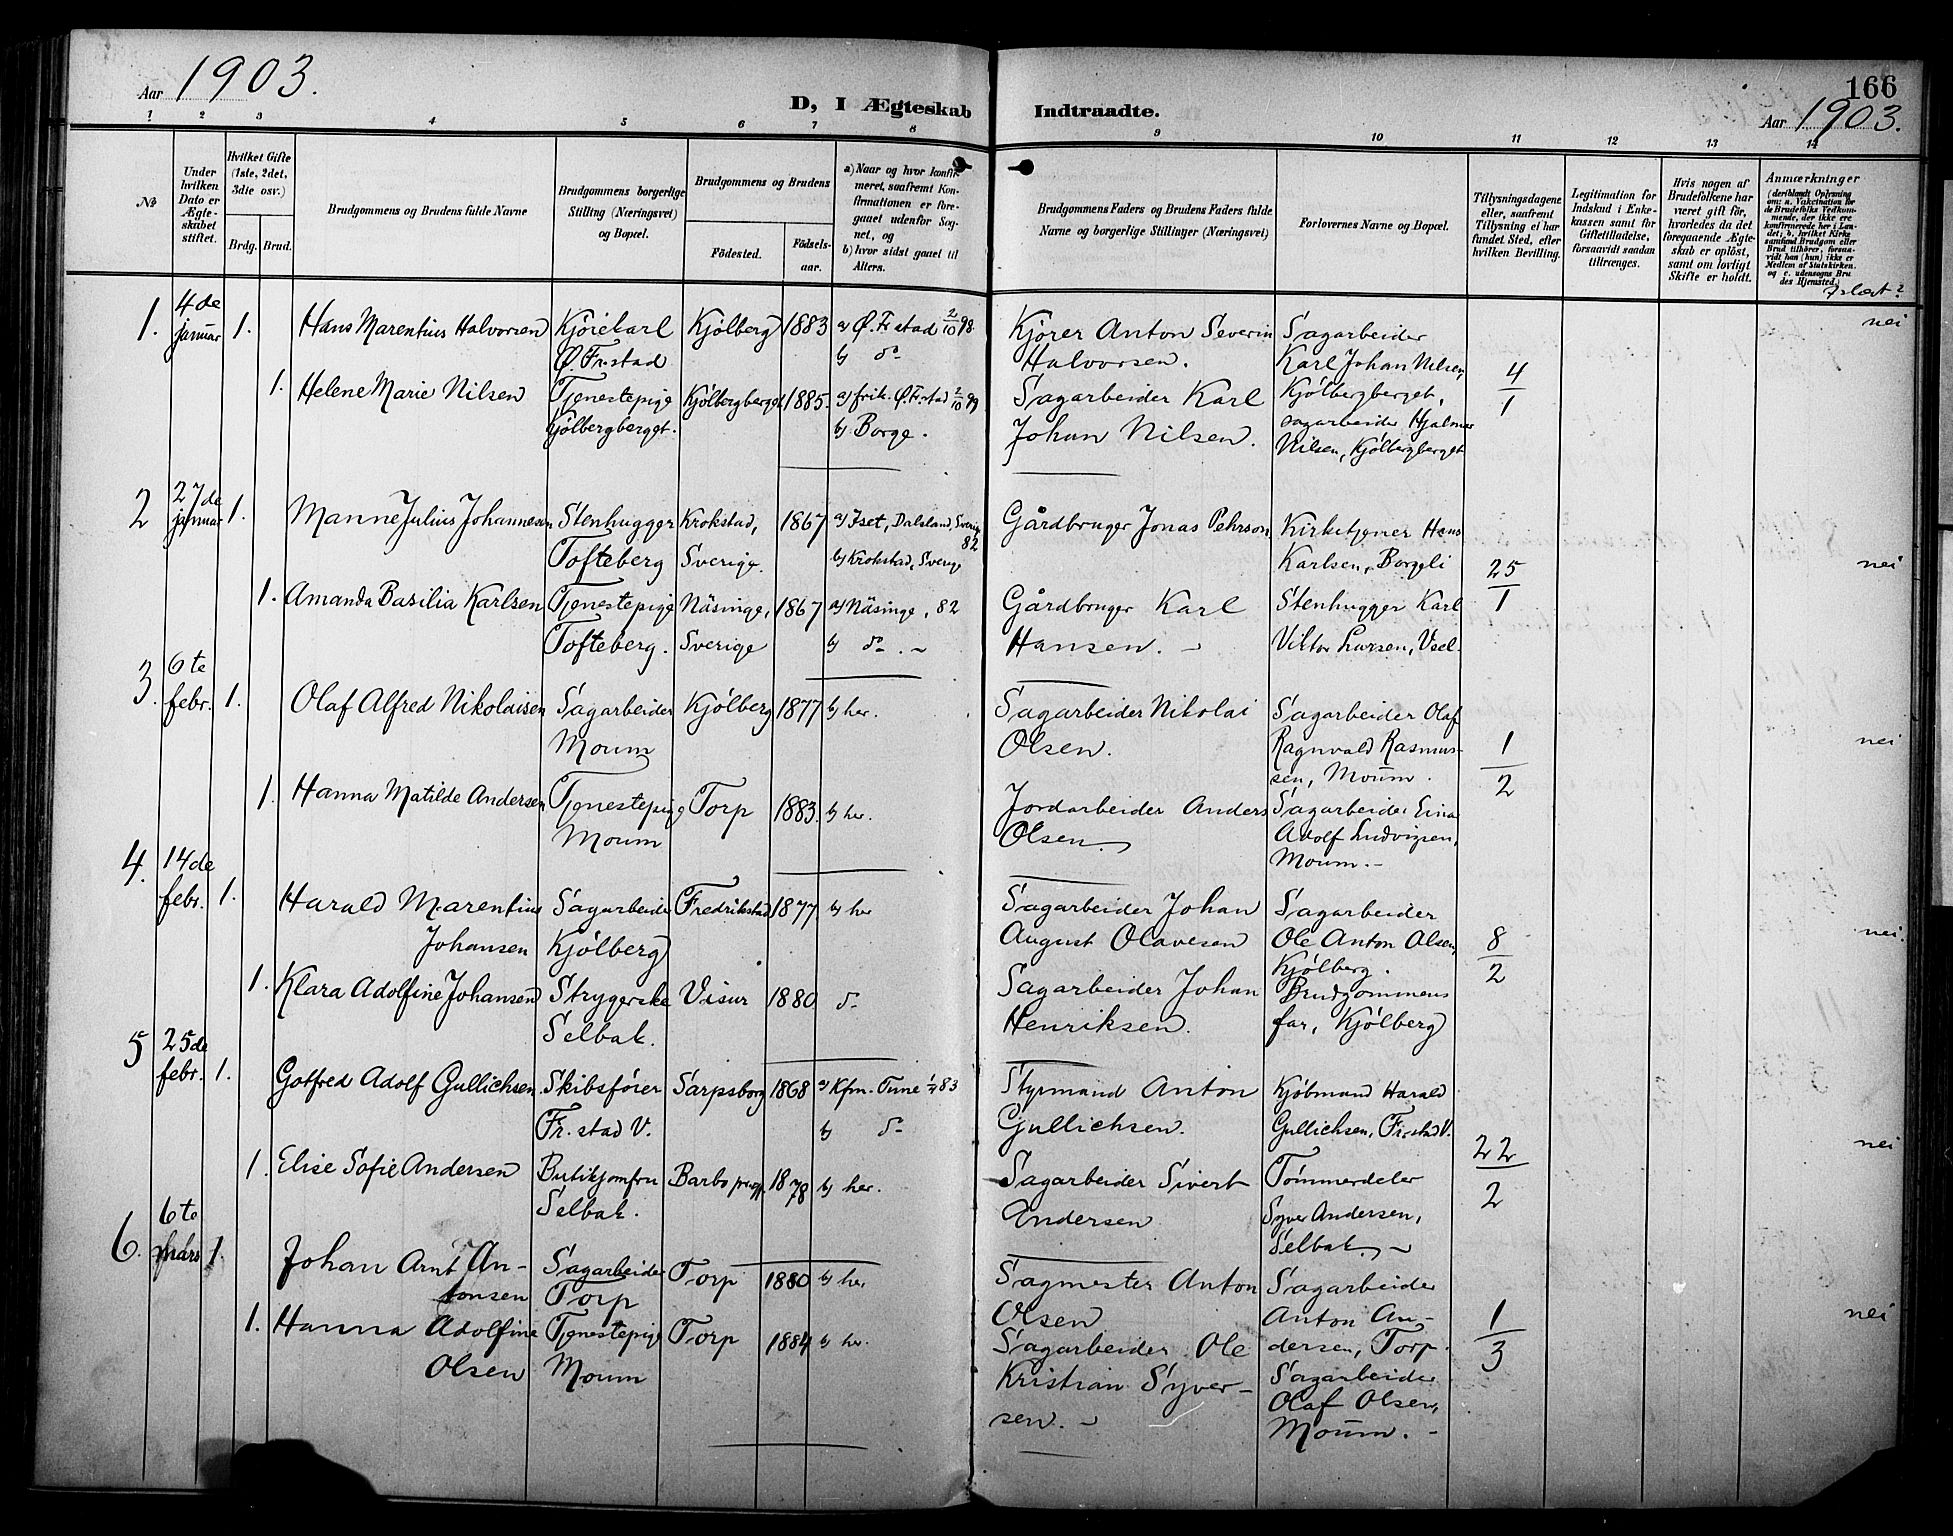 Aar 1903.
D, I Ægteskab Indtraadte.
166
Aar 1903.
1 2 3 4 5 6 7 8 9 10 11 12 13 14
No
Under hvilken Dato er Ægteskabet stiftet.
Hvilket Gifte (1ste, 2det, 3die osv.)
Brdg. Brud.
Brudgommens og Brudens fulde Navne
Brudgommens borgerlige Stilling (Næringsvei) og Bopæl.
Brudgommens og Brudens
Fødested.
Fødselsaar.
a) Naar og hvor konfirmeret, saafremt Konfirmationen er foregaaet udenfor Sognet, og
b) hvor sidst gaaet til Alters.
Brudgommens Faders og Brudens Faders fulde Navne og borgerlige Stillinger (Næringsvei)
Forlovernes Navne og Bopæl.
Tillysningsdagene eller, saafremt Tillysning ei har fundet Sted, efter hvilken Bevilling.
Legitimation for Indskud i Enkekassen samt for Giftetilladelse, forsaavidt saadan tiltrænges.
Hvis nogen af Brudefolkene har været gift før, hvorledes da det foregaaende Ægteskab er opløst, samt om lovligt Skifte er holdt.
Anmærkninger
(deriblandt Oplysning om: a. Vakcination for de Brudefolks Vedkommende, der ikke ere konfirmerede her i Landet; b. hvilket Kirkesamfund Brudgom eller Brud tilhører, forsaavidt han (hun) ikke er Medlem af Statskirken, og c. udensogns Brudes Hjemsted.)
1. 4de januar 1. Hans Marentius Halvorsen Kjørekarl Kjølberg 1883 a) Ø. Fr.stad 2/10 98. Kjører Anton Severin Sagarbeider nei
Ø. Fr.stad b) do Halvorsen. Karl Johan Nilsen, 4/1
1. Helene Marie Nilsen Tjenestepige Kjølbergberget 1885. a) frik. Ø. Fr.stad 2/10 99 Sagarbeider Karl Kjølbergberget,
Kjølbergberget. b) Borge. Johan Nilsen. sagarbeider Hjalmar
Nilsen, Kjølbergberget
2 27de januar 1. Manne Julius Johannesen Stenhugger Krokstad, 1867 a) Iset, Dalsland, Sverig 82 Gårdbruger Jonas Pehrson Kirketjener Hans
Tofteberg Sverige. b) Krokstad, Sverige Karlsen, Borgeli 25/1 nei
1. Amanda Basilia Karlsen Tjenestepige Näsinge, 1867 a) Näsinge, 82 Gårdbruger Karl Stenhugger Karl
Tofteberg. Sverige b) do. Hansen. Viktor Larsen, Veel.
3. 6te febr. 1. Olaf Alfred Nikolaisen Sagarbeider Kjølberg 1877 b) her. Sagarbeider Nikolai Sagarbeider Olaf
Moum Olsen. Ragnvald Rasmussen, Moum. 1/2 nei
1. Hanna Matilde Andersen Tjenestepige Torp 1883. b) her. Jordarbeider Anders Sagarbeider Einar
Moum Olsen. Adolf Ludvigsen,
Moum.
4. 14de febr. 1. Harald Marentius Sagarbeider Fredrikstad 1877. b) her Sagarbeider Johan Sagarbeider
Johansen Kjølberg August Olavesen Ole Anton Olsen, 8/2 nei.
Kjølberg.
1. Klara Adolfine Johansen Strygerske Visur 1880. do Sagarbeider Johan Brudgommens
Selbak. Henriksen. far, Kjølberg
5 25de febr. 1. Gotfred Adolf Gullichsen Skibsfører Sarpsborg 1868 a) Kfm. Tune 83 Styrmand Anton Kjøbmand Harald
Fr.stad V. b) do Gullichsen. Gullichsen, Fr.stad V. 22/2 nei
1. Elise Sofie Andersen Butikjomfru Barbo 1878 b) her. Sagarbeider Sivert Tømmerdeler
Selbak. Andersen Syver Andersen,
Selbak.
6. 6te mars 1. Johan Arnt An- Sagarbeider Torp 1880 b) her Sagmester Anton Sagarbeider
tonsen Torp Olsen Anton An- 1/3 nei
1. Hanna Adolfine Tjenestepige Torp 1884 b) her. Sagarbeider Ole dersen, Torp.
Olsen Moum Kristian Syver- Sagarbeider
sen. Olaf Olsen,
Moum.